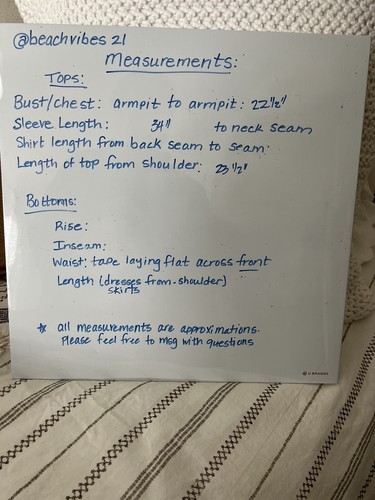 @beachvibes 21
Measurements:
Tops:
Bust/chest: armpit to armpit: 22 1/2"
Sleeve Length: 34" to neck seam
Shirt length from back seam to seam:
Length of top from shoulder: 23 1/2"
Bottoms:
Rise:
Inseam:
Waist: tape laying flat across front
Length (dresses from shoulder)
skirts
* all measurements are approximations.
Please feel free to msg with questions
U BRANDS